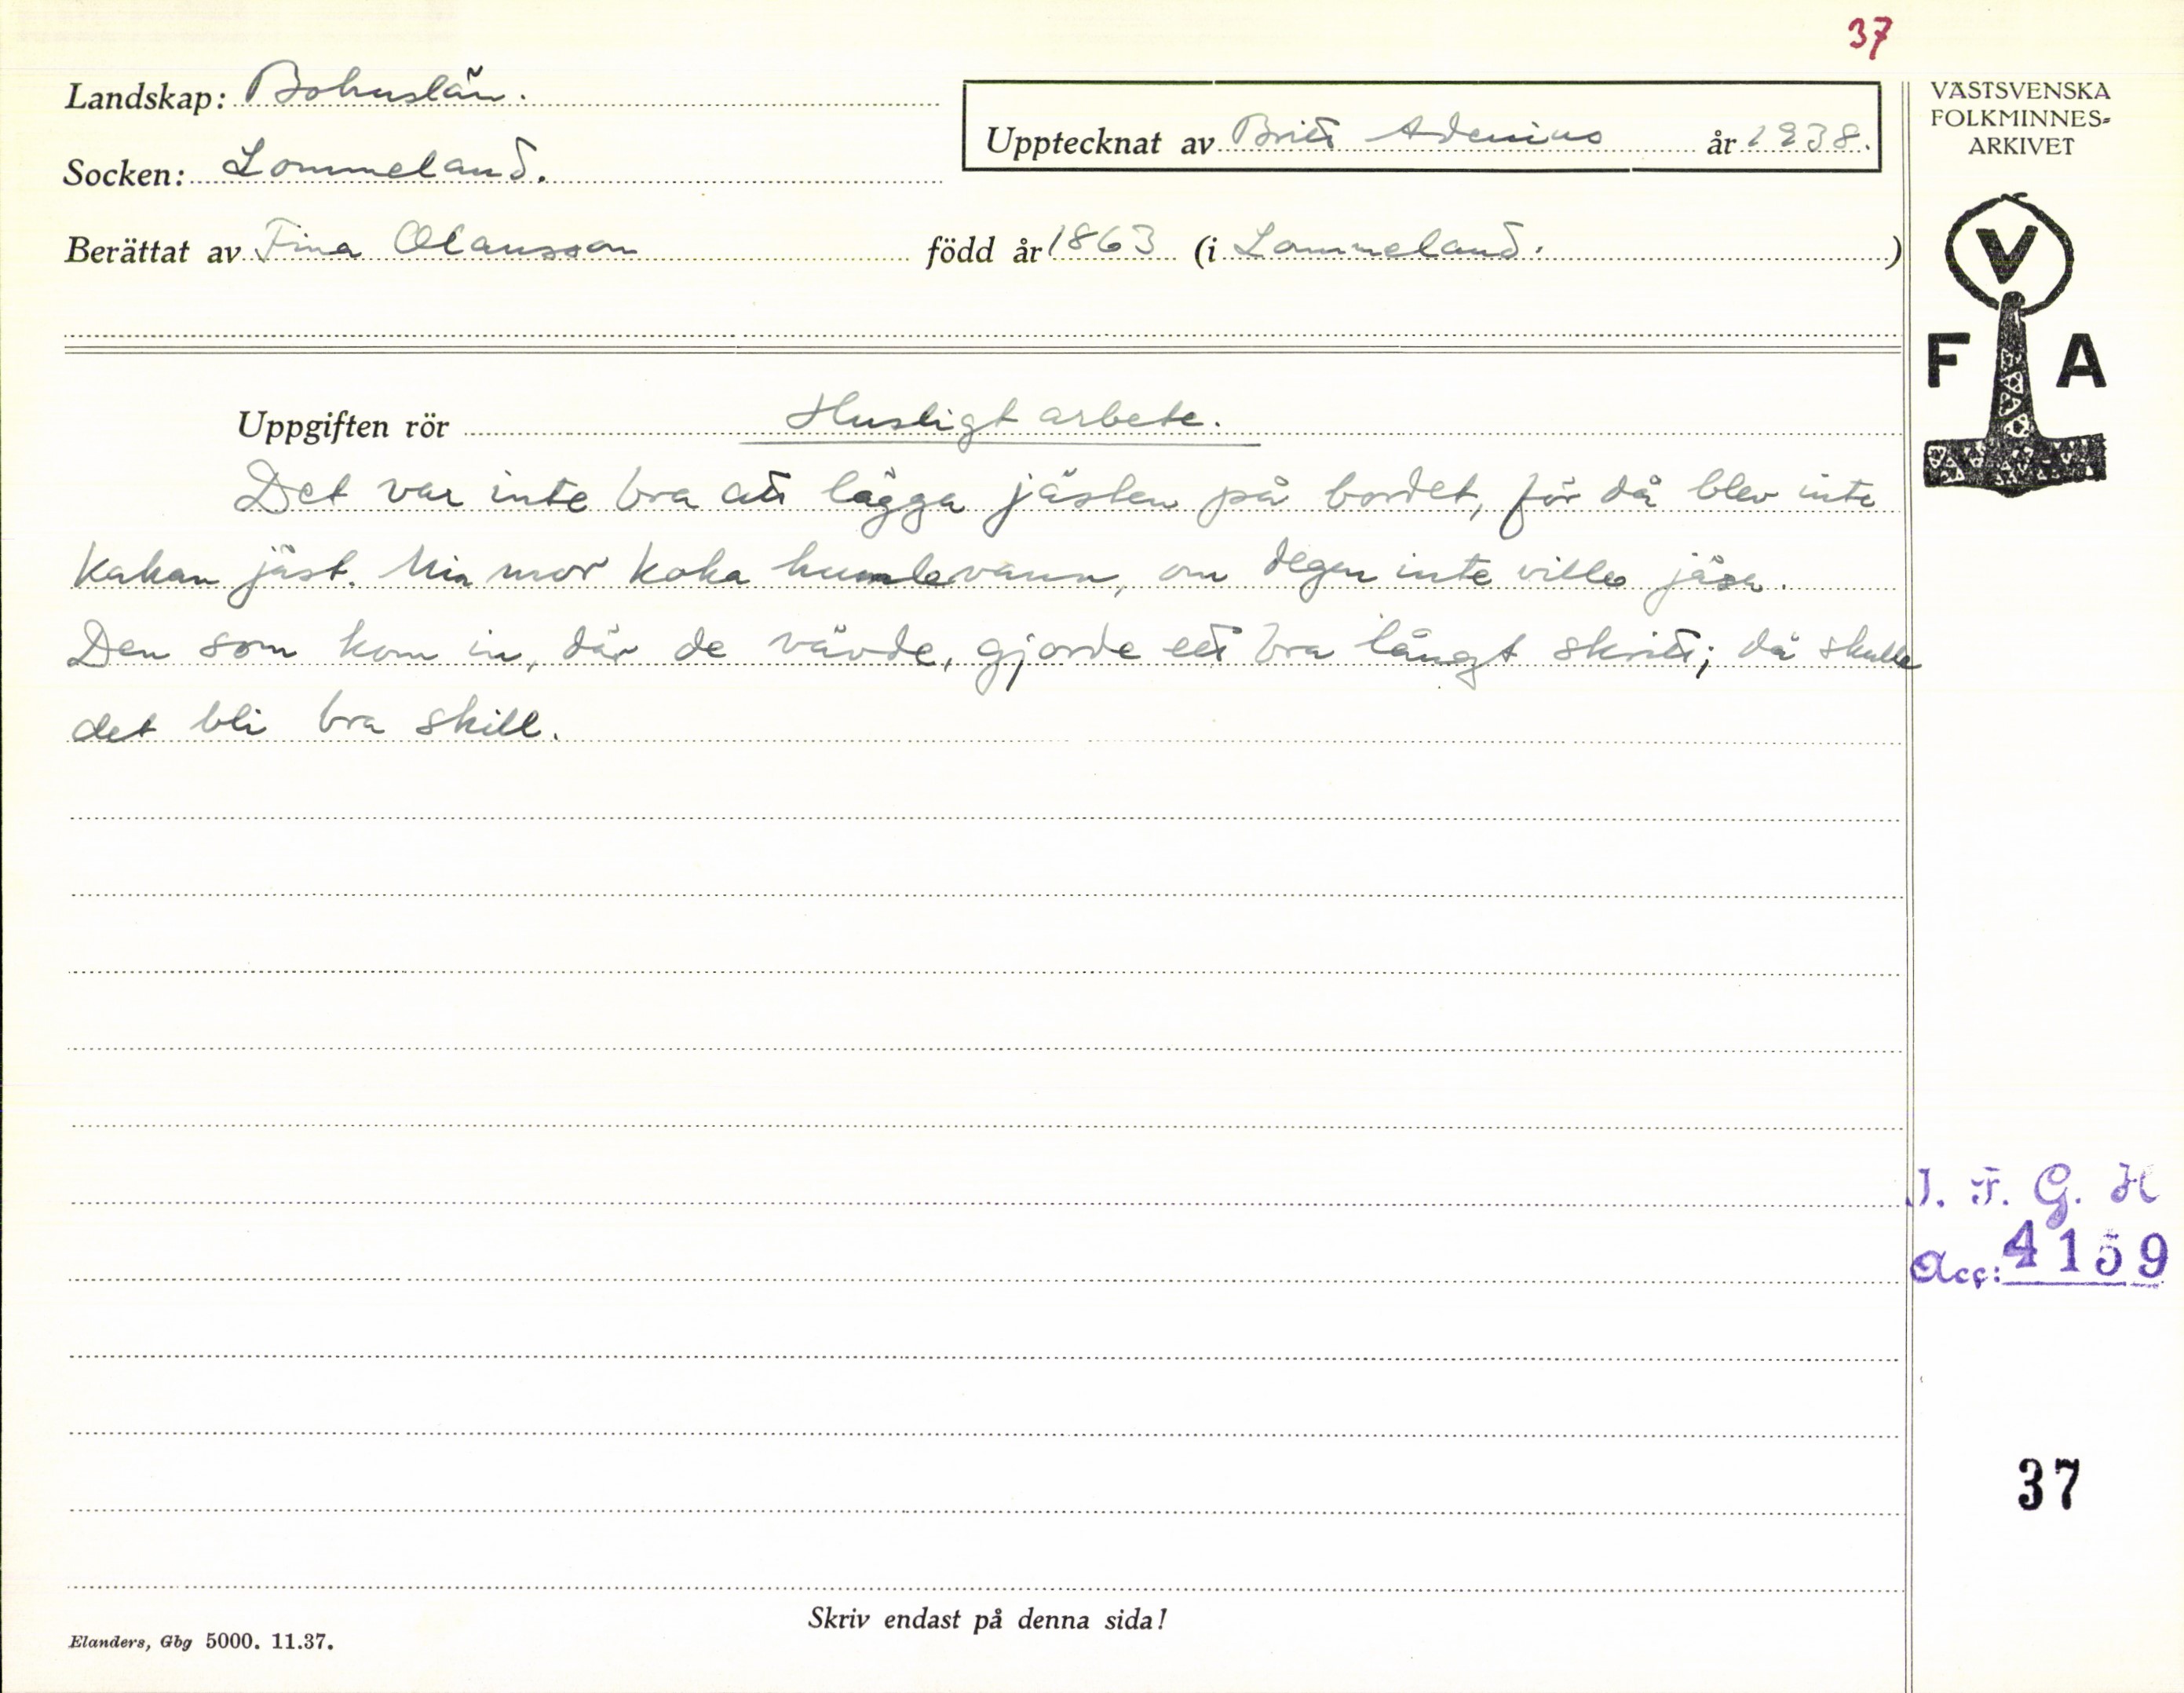 37
Landskap: Bohuslän.
Upptecknat av Britt Adenius år 1938.
Socken: Lommeland.
Berättat av Fina Olausson född år 1863 (i Lommeland. )
VÄSTSVENSKA
FOLKMINNES-
ARKIVET
V
F A
Uppgiften rör Husligt arbete.
Det var inte bra att lägga jästen på bordet, för då blev inte
kakan jäst. Min mor koka humlevann, om degen inte ville jäsa.
Den som kom in, där de vävde, gjorde ett bra långt skritt; då skulle
det bli bra skill.
I. F. G. H
Acc: 4159
37
Skriv endast på denna sida!
Elanders, Gbg 5000. 11.37.